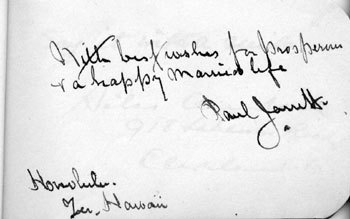 With best wishes for prosperous
& a happy married life
Paul Jarrett.
Honolulu.
Ter. Hawaii